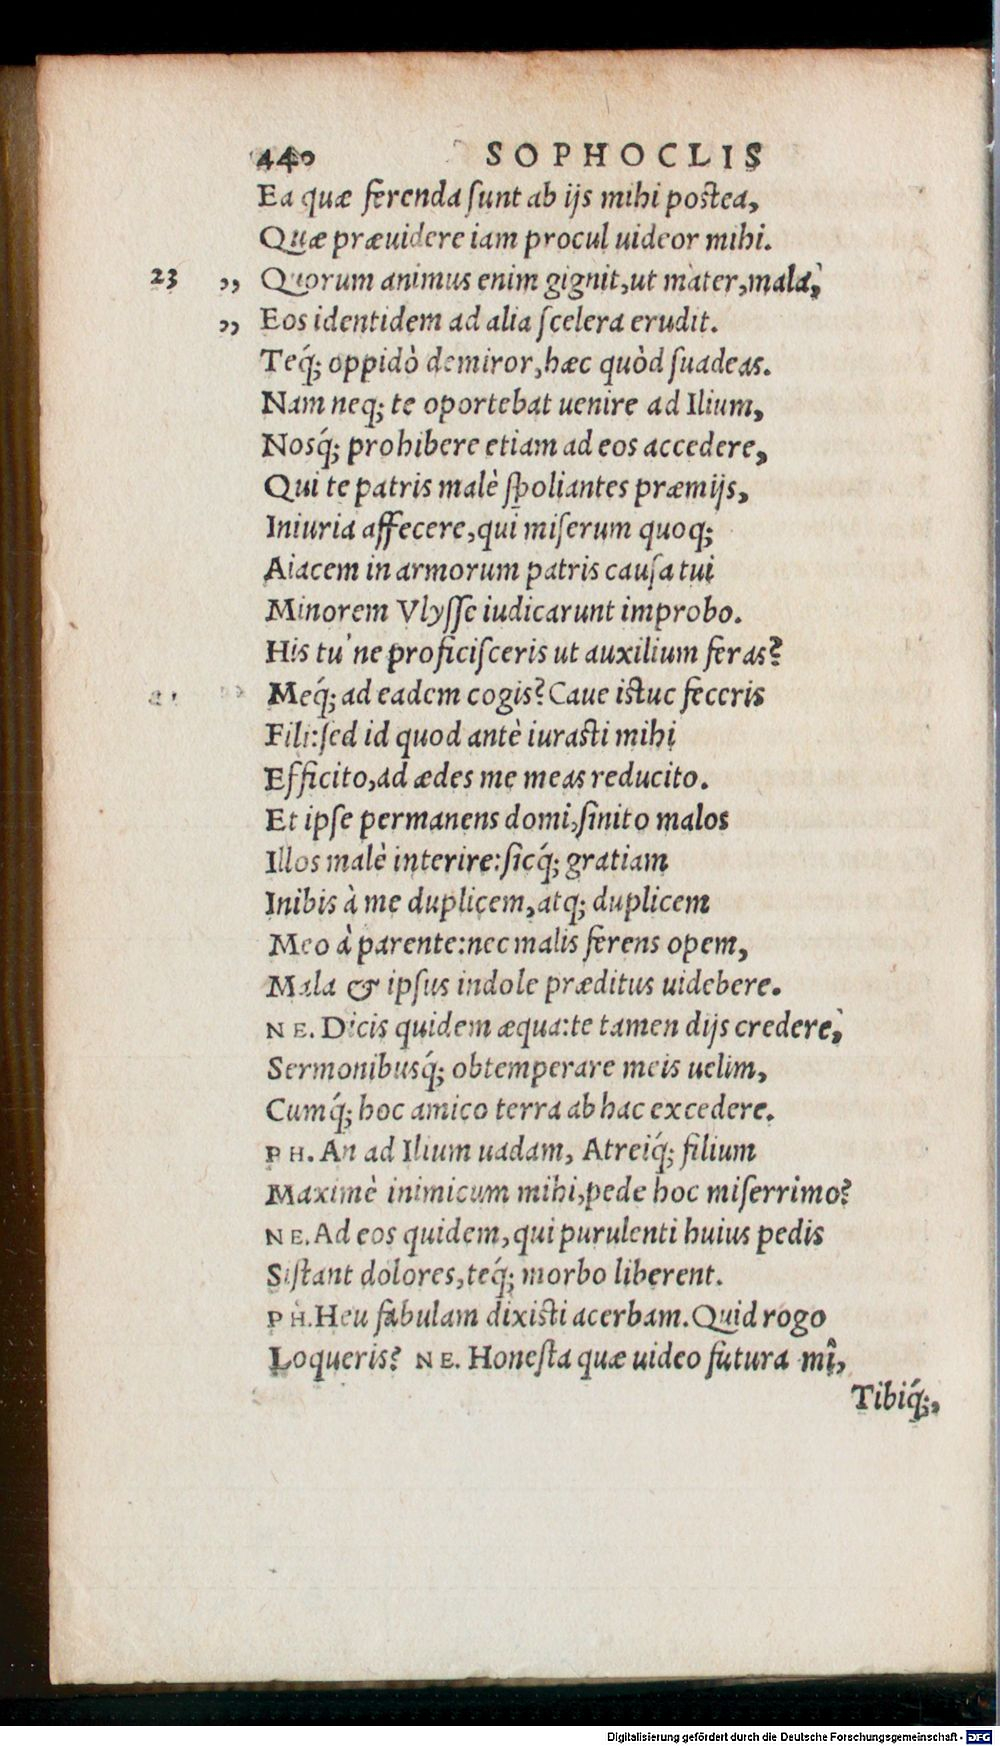 440 SOPHOCLIS
Ea quæ ferenda ſunt ab ijs mihi poſtea,
Quæ præuidere iam procul uideor mihi.
23 ,, Quorum animus enim gignit,ut mater,mala,
,, Eos identidem ad alia ſcelera erudit.
Teq́; oppidò demiror,hæc quòd ſuadeas.
Nam neq; te oportebat uenire ad Ilium,
Nosq́; prohibere etiam ad eos accedere,
Qui te patris malè ſpoliantes præmijs,
Iniuria affecere,qui miſerum quoq;
Aiacem in armorum patris cauſa tui
Minorem Vlyſſe iudicarunt improbo.
His tu ne proficiſceris ut auxilium feras?
Meq́; ad eadem cogis? Caue iſtuc feceris
Fili:ſed id quod antè iuraſti mihi
Efficito,ad ædes me meas reducito.
Et ipſe permanens domi,ſinito malos
Illos malè interire:ſicq́; gratiam
Inibis à me duplicem,atq; duplicem
Meo à parente:nec malis ferens opem,
Mala & ipſus indole præditus uidebere.
NE. Dicis quidem æqua:te tamen dijs credere,
Sermonibusq́; obtemperare meis uelim,
Cumq́; hoc amico terra ab hac excedere.
PH. An ad Ilium uadam, Atreiq́; filium
Maximè inimicum mihi,pede hoc miſerrimo?
NE. Ad eos quidem,qui purulenti huius pedis
Siſtant dolores,teq́; morbo liberent.
PH. Heu fabulam dixiſti acerbam. Quid rogo
Loqueris? NE. Honeſta quæ uideo futura mî,
Tibiq́;,
Digitalisierung gefördert durch die Deutsche Forschungsgemeinschaft - DFG